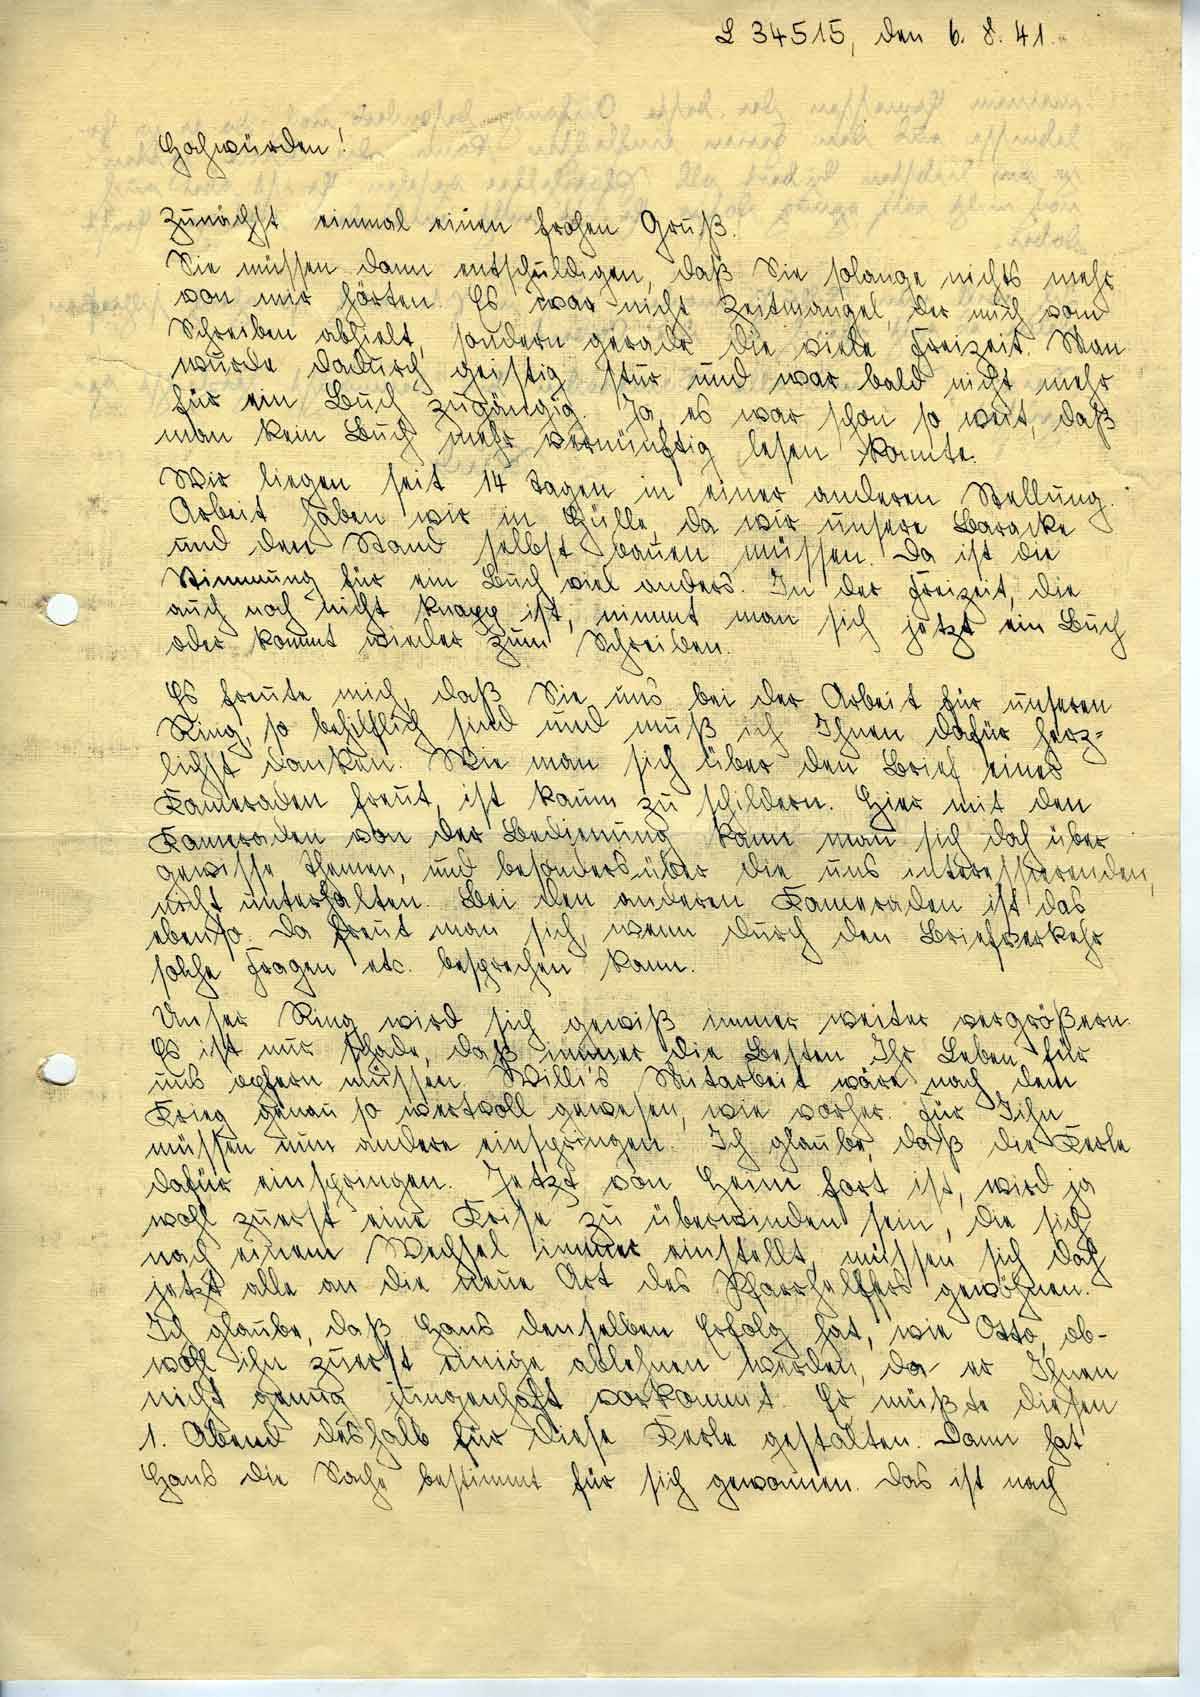 L 34515, den 6. 8. 41.
Hochwürden!
Zunächst einmal einen frohen Gruß.
Sie müssen dann entschuldigen, daß Sie solange nichts mehr
von mir hörten. Es war nicht Zeitmangel, der mich vom
Schreiben abhielt, sondern gerade die viele Freizeit. Man
wurde dadurch geistig stur und war bald nicht mehr
für ein Buch zugängig. Ja, es war schon so weit, daß
man kein Buch mehr vernünftig lesen konnte.
Wir liegen seit 14 Tagen in einer anderen Stellung.
Arbeit haben wir in Hülle, da wir unsere Baracke
und den Stand selbst bauen müssen. Da ist die
Stimmung für ein Buch viel anders. In der Freizeit, die
auch noch nicht knapp ist, nimmt man sich jetzt ein Buch
oder kommt wieder zum Schreiben.
Es freute mich, daß Sie uns bei der Arbeit für unseren
Ring, so behilflich sind und muß ich Ihnen dafür herz-
lichst danken. Wie man sich über den Brief eines
Kameraden freut, ist kaum zu schildern. Hier mit den
Kameraden von der Bedienung kann man sich doch über
gewisse Themen, und besonders über die uns interessierenden,
nicht unterhalten. Bei den anderen Kameraden ist das
ebenso. Da freut man sich, wenn durch den Briefverkehr
solche Fragen etc. besprechen kann.
Unser Ring wird sich gewiß immer weiter vergrößern.
Es ist nur schade, daß immer die Besten Ihr Leben für
uns opfern müssen. Willi's Mitarbeit wäre nach dem
Krieg genau so wertvoll gewesen, wie vorher. Für Ihn
müssen nun andere einspringen. Ich glaube, daß die Kerle
dafür einspringen. Jetzt von Heim fort ist, wird ja
wohl zuerst eine Krise zu überwinden sein, die sich
nach einem Wechsel immer einstellt, müssen sich doch
jetzt alle an die neue Art des Pfarrhelfers gewöhnen.
Ich glaube, daß Hans denselben Erfolg hat, wie Otto, ob-
wohl ihn zuerst einige ablehnen werden, da er Ihnen
nicht genug jungenhaft vorkommt. Er müßte diesen
1. Abend deshalb für diese Kerle gestalten. Dann hat
Hans die Sache bestimmt für sich gewonnen. Das ist nach